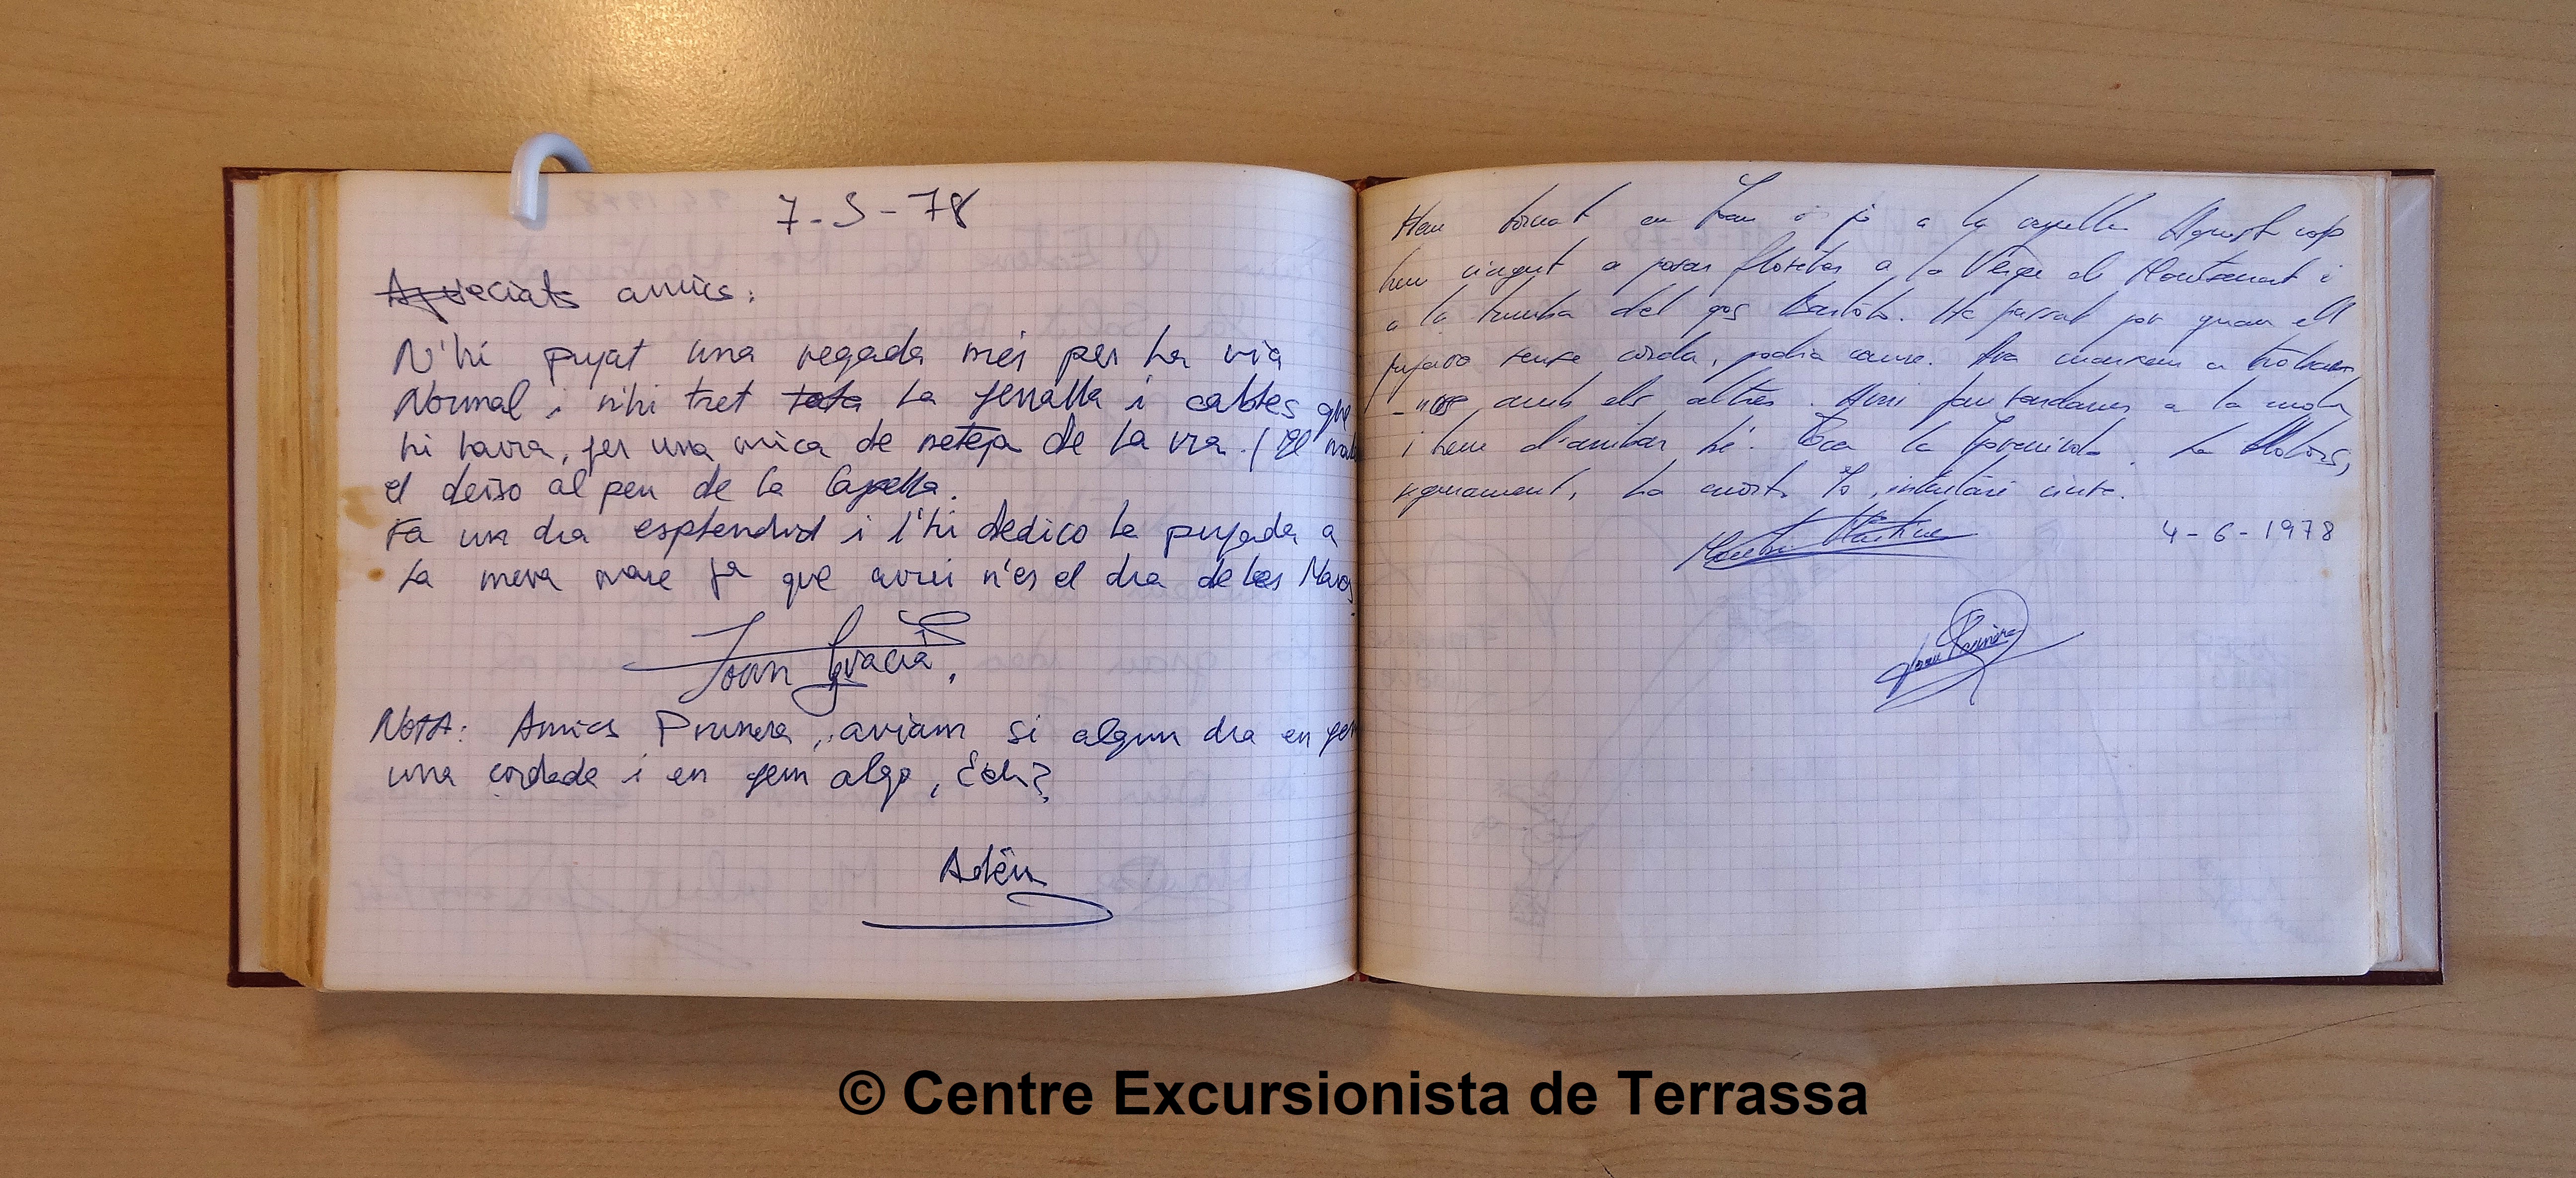 7-5-78
Apreciats amics:
N'hi pujat una vegada més per la via
Normal i n'hi tret tota la ferralla i cables que
hi havia, fer una mica de neteja de la via. (
el deixo al peu de la Capella.
Fa un dia esplendid i l'hi dedico la pujada a
la meva mare ja que avui n'es el dia de les Mares
Joan Gracià.
NOTA: Amics Prunera, aviam si algun dia en fem
una cordada i en fem algo, Eeh?
Adéu
Hem tornat en Joan i jo a la capella. Aquest cop
hem vingut a posar floretes a la Verge de Montserrat i
a la tumba del gos Bartolo. Ha passat por quan ell
pujava sense corda, podia caure. Ara marxem a trobar
-nos amb els altres. Avui fan sardanes a la
i hem d'arribar bé. Toca la Jovenivola. La
segurament, la Jo, intentaré
4-6-1978
© Centre Excursionista de Terrassa